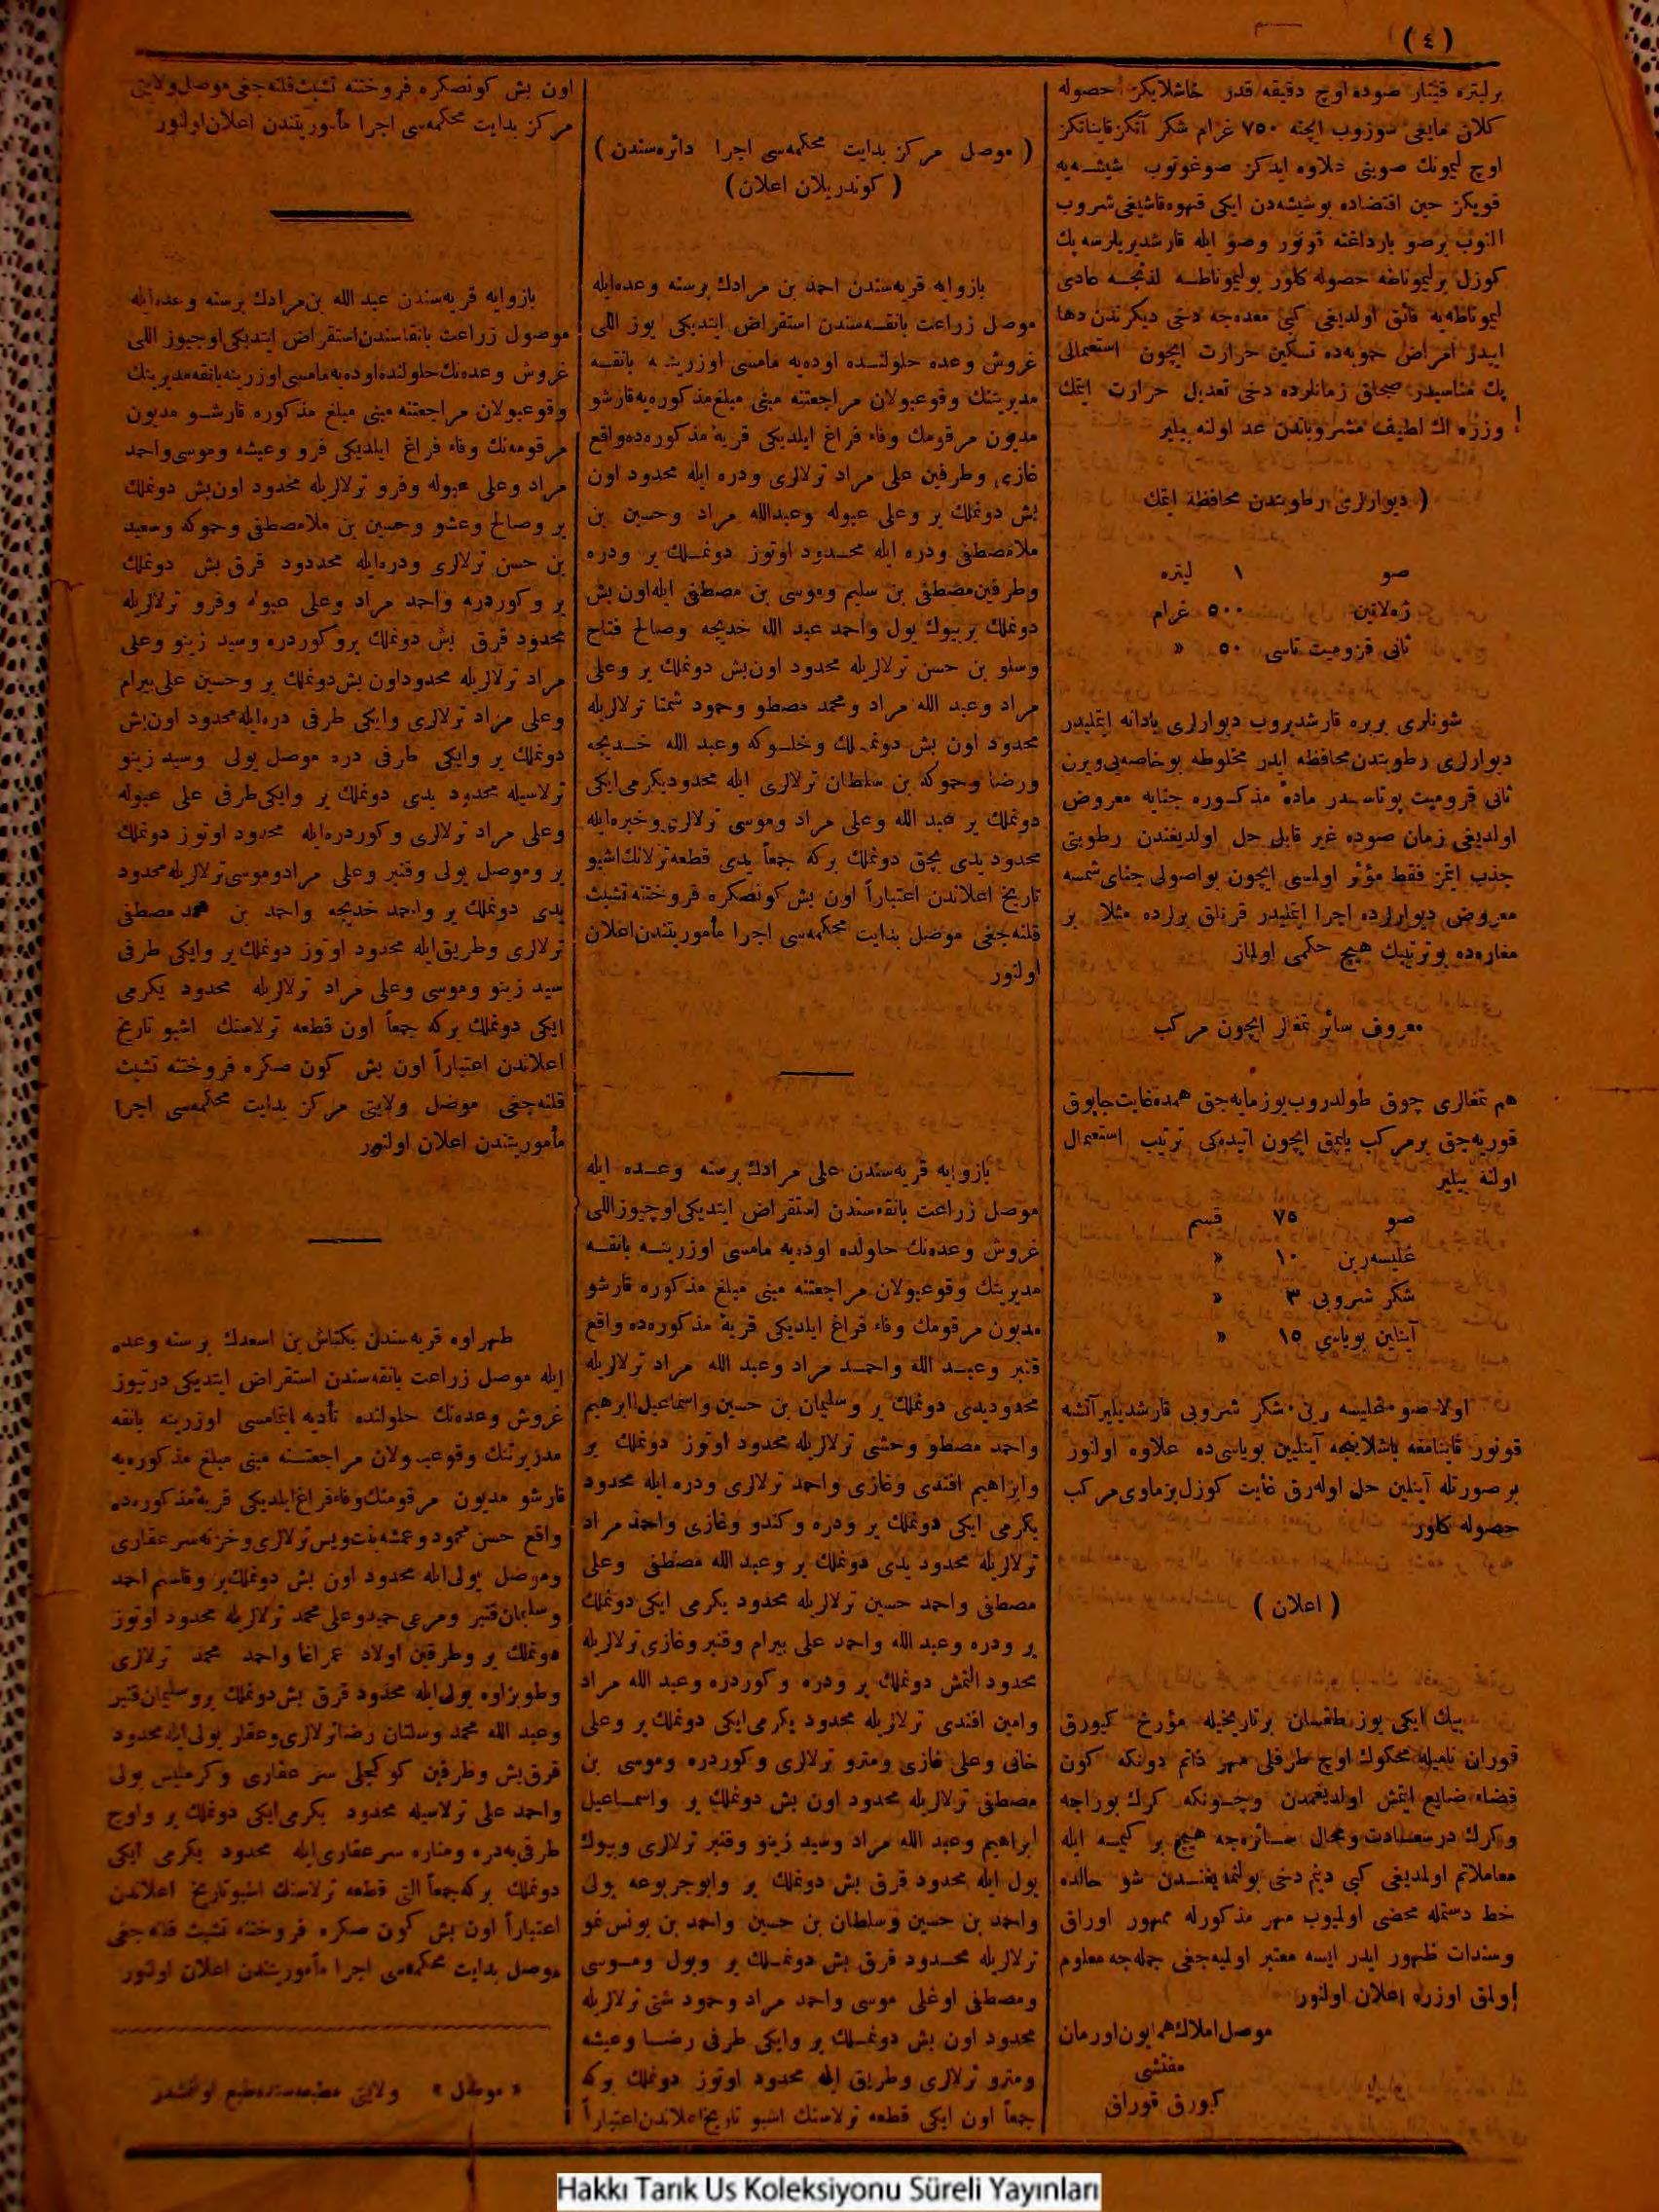 (٤)
برلیتره قینار صوده اوچ دقیقه قدر خاشلایكز حصوله
كلان مایعی سوزوب ایچنه ٧٥٠ غرام شكر آتكز قایناتكز
اوچ لیمونك صوینی علاوه ایدكز صوغوتوب شیشه‌یه
قویكز حین اقتضاده بوشیشه‌دن ایكی قهوه قاشیغی شروب
النوب برصو بارداغنه قونور وصو ایله قارشدیریلرسه پك
كوزل برلیموناطه حصوله كلور بولیموناطه لذتجه عادی
لیموناطه‌یه فائق اولدیغی كبی معده‌جه دخی دیكرندن دها
اییدر امراض حویه‌ده تسكین حرارت ایچون استعمالی
پك مناسبدر صیجاق زمانلرده دخی تعدیل حرارت ایتمك
اوزره اك لطیف مشروباتدن عد اولنه بیلیر
( دیوارلری رطوبتدن محافظه ایتمك
صو ١ لیتره
ژه‌لاتین ٥٠٠ غرام
ثانی قرومیت تاسی ٥٠ «
شونلری بربره قارشدیروب دیوارلری یادانه ایتملیدر
دیوارلری رطوبتدن محافظه ایدر مخلوطه بوخاصه‌یی ویرن
ثانی قرومیت پوتاسدر مادهٔ مذكوره ضیایه معروض
اولدیغی زمان صوده غیر قابل حل اولدیغندن رطوبتی
جذب ایتمز فقط مؤثر اولمسی ایچون بو اصولی ضیای شمسه
معروض دیوارلرده اجرا ایتملیدر قرنلق یرلرده مثلا بر
مغاره‌ده بوترتیبك هیچ حكمی اولماز
معروف سائر تمغالر ایچون مركب
هم تمغالری چوق طولدروب بوزمایه‌جق همده غایت چابوق
قوریه‌جق برمركب یاپمق ایچون اتیده‌كی ترتیب استعمال
اولنه بیلیر
صو ٧٥ قسم
غلیسه‌رین ١٠ «
شكر شروبی ٣ «
آنیلین بویاسی ١٥ «
اولا صو غلیسه رین شكر شروبی قارشدیلیر آتشه
قونور قاینامغه باشلاینجه آنیلین بویاسی‌ده علاوه اولنور
بر صورتله آنیلین حل اوله‌رق غایت كوزل برماوی مركب
حصوله كلور
( اعلان )
بیك ایكی یوز طقسان بر تاریخیله مؤرخ كیورق
قوران نامیله محكوك اوچ طرفلی مهر ذاتم دونكه كون
قضاء ضایع ایتمش اولدیغمدن وچونكه كرك بوراجه
وكرك درسعادت ومحال سائره‌جه هیچ بر كیمسه ایله
معاملاتم اولمدیغی كبی دینم دخی بولنمدیغندن شو حالده
خط دستمله محضی اولمیوب مهر مذكورله ممهور اوراق
وسندات ظهور ایدر ایسه معتبر اولمیه‌جغی جمله‌جه معلوم
اولمق اوزره اعلان اولنور
موصل املاك همایون اورمان
مفتشی
كیورق قوراق
( موصل مركز بدایت محكمه‌سی اجرا دائره‌سندن )
( كوندریلان اعلان )
بازوایه قریه‌سندن احمد بن مرادك برسنه وعده ایله
موصل زراعت بانقه‌سندن استقراض ایتدیكی یوز اللی
غروش وعده حلولنده اوده‌یه مامسی اوزرینه بانقه
مدیریتنك وقوعبولان مراجعتنه مبنی مبلغ مذكوره‌یه قارشو
مدیون مرقومك وفاء فراغ ایلدیكی قریهٔ مذكوره‌ده واقع
غازی وطرفین علی مراد ترلالری ودره ایله محدود اون
بش دونملك بر وعلی عبوله وعبدالله مراد وحسین بن
ملامصطفی ودره ایله محدود اوتوز دونملك بر ودره
وطرفین مصطفی بن سلیم وموسی بن مصطفی ایله اون بش
دونملك بر بیوك یول واحمد عبد الله خدیجه وصالح فتاح
وسلو بن حسن ترلالریله محدود اون بش دونملك بر وعلی
مراد وعبد الله مراد ومحمد مصطو وحمود شمتا ترلالریله
محدود اون بش دونملك وخلوكه وعبد الله خدیجه
ورضا وحموكه بن سلطان ترلالری ایله محدود یكرمی ایكی
دونملك بر عبد الله وعلی مراد وموسی ترلالری وخبره ایله
محدود یدی بچق دونملك بركه جمعاً یدی قطعه ترلانك اشبو
تاریخ اعلاندن اعتباراً اون بش كونصكره فروختنه تشبث
قلنه‌جغی موصل بدایت محكمه‌سی اجرا مأموریتندن اعلان
اولنور
بازوایه قریه‌سندن علی مرادك برسنه وعده ایله
موصل زراعت بانقه‌سندن استقراض ایتدیكی اوچیوز اللی
غروش وعده‌نك حلولده اودیه مامسی اوزرینه بانقه
مدیریتك وقوعبولان مراجعتنه مبنی مبلغ مذكوره قارشو
مدیون مرقومك وفاء فراغ ایلدیكی قریهٔ مذكوره‌ده واقع
قنبر وعبد الله واحمد مراد وعبد الله مراد ترلالریله
محدودیدی دونملك بر وسلیمان بن حسین واسماعیل ابرهیم
واحمد مصطو وحشی ترلالریله محدود اوتوز دونملك بر
وابراهیم افندی وغازی واحمد ترلالری ودره ایله محدود
یكرمی ایكی دونملك بر ودره وكندو وغازی واحمد مراد
ترلالریله محدود یدی دونملك بر وعبد الله مصطفی وعلی
مصطفی واحمد حسین ترلالریله محدود یكرمی ایكی دونملك
بر ودره وعبد الله واحمد علی بیرام وقنبر وغازی ترلالریله
محدود التمش دونملك بر ودره وكوردره وعبد الله مراد
وامین افندی ترلالریله محدود یكرمی ایكی دونملك بر وعلی
خانی وعلی غازی ومترو ترلالری وكوردره وموسی بن
مصطفی ترلالریله محدود اون بش دونملك بر واسماعیل
ابراهیم وعبد الله مراد وسید زینو وقنبر ترلالری وبیوك
یول ایله محدود قرق بش دونملك بر وابوجربوعه یولی
واحمد بن حسین وسلطان بن حسین واحمد بن یونس نمو
ترلالریله محدود قرق بش دونملك بر ویول وموسی
ومصطفی اوغلی موسی واحمد مراد وحمود شتی ترلالریله
محدود اون بش دونملك بر وایكی طرفی رضا وعیشه
ومترو ترلالری وطریق ایله محدود اوتوز دونملك بركه
جمعاً اون ایكی قطعه ترلاسنك اشبو تاریخ اعلاندن اعتباراً
اون بش كونصكره فروختنه تشبث قلنه‌جغی موصل ولایتی
مركز بدایت محكمه‌سی اجرا مأموریتندن اعلان اولنور
بازوایه قریه‌سندن عبد الله بن مرادك برسنه وعده ایله
موصول زراعت بانقاسندن استقراض ایتدیكی اوچیوز اللی
غروش وعده‌نك حلولنده اوده‌یه مامسی اوزرینه بانقه مدیریتك
وقوعبولان مراجعتنه مبنی مبلغ مذكوره قارشو مدیون
مرقومه‌نك وفاء فراغ ایلدیكی فرو وعیشه وموسی واحمد
مراد وعلی عبوله وفرو ترلالریله محدود اون بش دونملك
بر وصالح وعشو وحسین بن ملامصطفی وحموكه وسعید
بن حسن ترلالری ودره ایله محددود قرق بش دونملك
بر وكوردره واحمد مراد وعلی عبوله وفرو ترلالریله
محدود قرق بش دونملك بروكوردره وسید زینو وعلی
مراد ترلالریله محدود اون بش دونملك بر وحسین علی بیرام
وعلی مراد ترلالری وایكی طرفی دره ایله محدود اون بش
دونملك بر وایكی طرفی دره موصل یولی وسید زینو
ترلاسیله محدود یدی دونملك بر وایكی طرفی علی عبوله
وعلی مراد ترلالری وكوردره ایله محدود اوتوز دونملك
بر وموصل یولی وقنبر وعلی مراد وموسی ترلالریله محدود
یدی دونملك بر واحمد خدیجه واحمد بن محمد مصطفی
ترلالری وطریق ایله محدود اوتوز دونملك بر وایكی طرفی
سید زینو وموسی وعلی مراد ترلالریله محدود یكرمی
ایكی دونملك بركه جمعاً اون قطعه ترلاسنك اشبو تاریخ
اعلاندن اعتباراً اون بش كون صكره فروختنه تشبث
قلنه‌جغی موصل ولایتی مركز بدایت محكمه‌سی اجرا
مأموریتندن اعلان اولنور
طهراوه قریه‌سندن بكتاش بن اسعدك برسنه وعده
ایله موصل زراعت بانقه‌سندن استقراض ایتدیكی درتیوز
غروش وعده‌نك حلولنده تأدیه ایتمامسی اوزرینه بانقه
مدیریتنك وقوعبولان مراجعتنه مبنی مبلغ مذكوره‌یه
قارشو مدیون مرقومنك وفاء فراغ ایلدیكی قریهٔ مذكوره‌ده
واقع حسن حمود وعمشه بنت ویس ترلالری وخزنه سر عقاری
وموصل یولی ایله محدود اون بش دونملك بر وقاسم احمد
وسلیمان قنبر ومرعی حمید وعلی محمد ترلالریله محدود اوتوز
دونملك بر وطرفین اولاد عمراغا واحمد محمد ترلالری
وطوبزاوه یولی ایله محدود قرق بش دونملك بر وسلیمان قنبر
وعبد الله محمد وسلتان رضا ترلالری وعقار یولی ایله محدود
قرق بش وطرفین كوكجلی سر عقاری وكرملیس یولی
واحمد علی ترلاسیله محدود یكرمی ایكی دونملك بر واوچ
طرفی به دره ومناره سر عقاری ایله محدود یكرمی ایكی
دونملك بركه جمعاً التی قطعه ترلاسنك اشبو تاریخ اعلاندن
اعتباراً اون بش كون صكره فروختنه تشبث قلنه‌جغی
موصل بدایت محكمه‌سی اجرا مأموریتندن اعلان اولنور
« موصل » ولایتی مطبعه‌سنده طبع اولنمشدر
Hakkı Tarık Us Koleksiyonu Süreli Yayınları